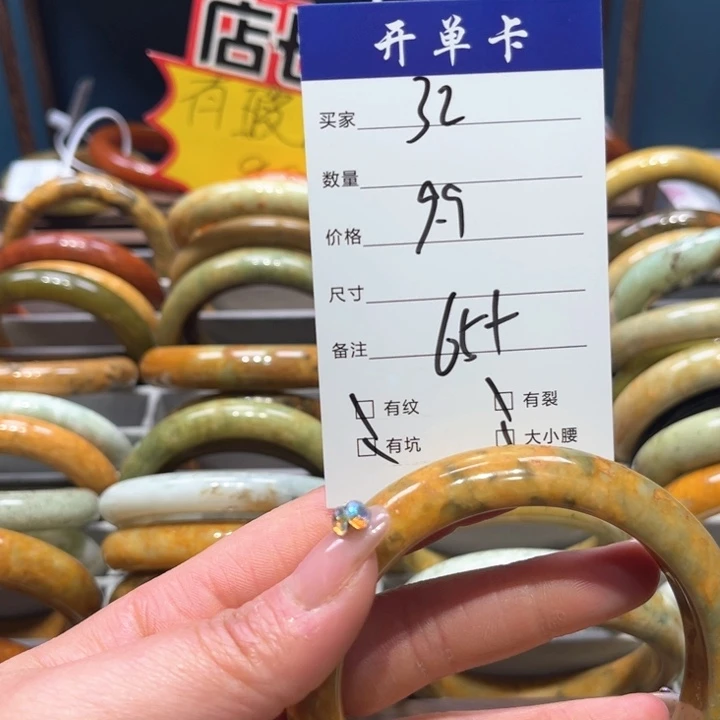 店
有
开单卡
买家 32
数量
价格 99
尺寸
备注 65+
有纹 有裂
有坑 大小腰